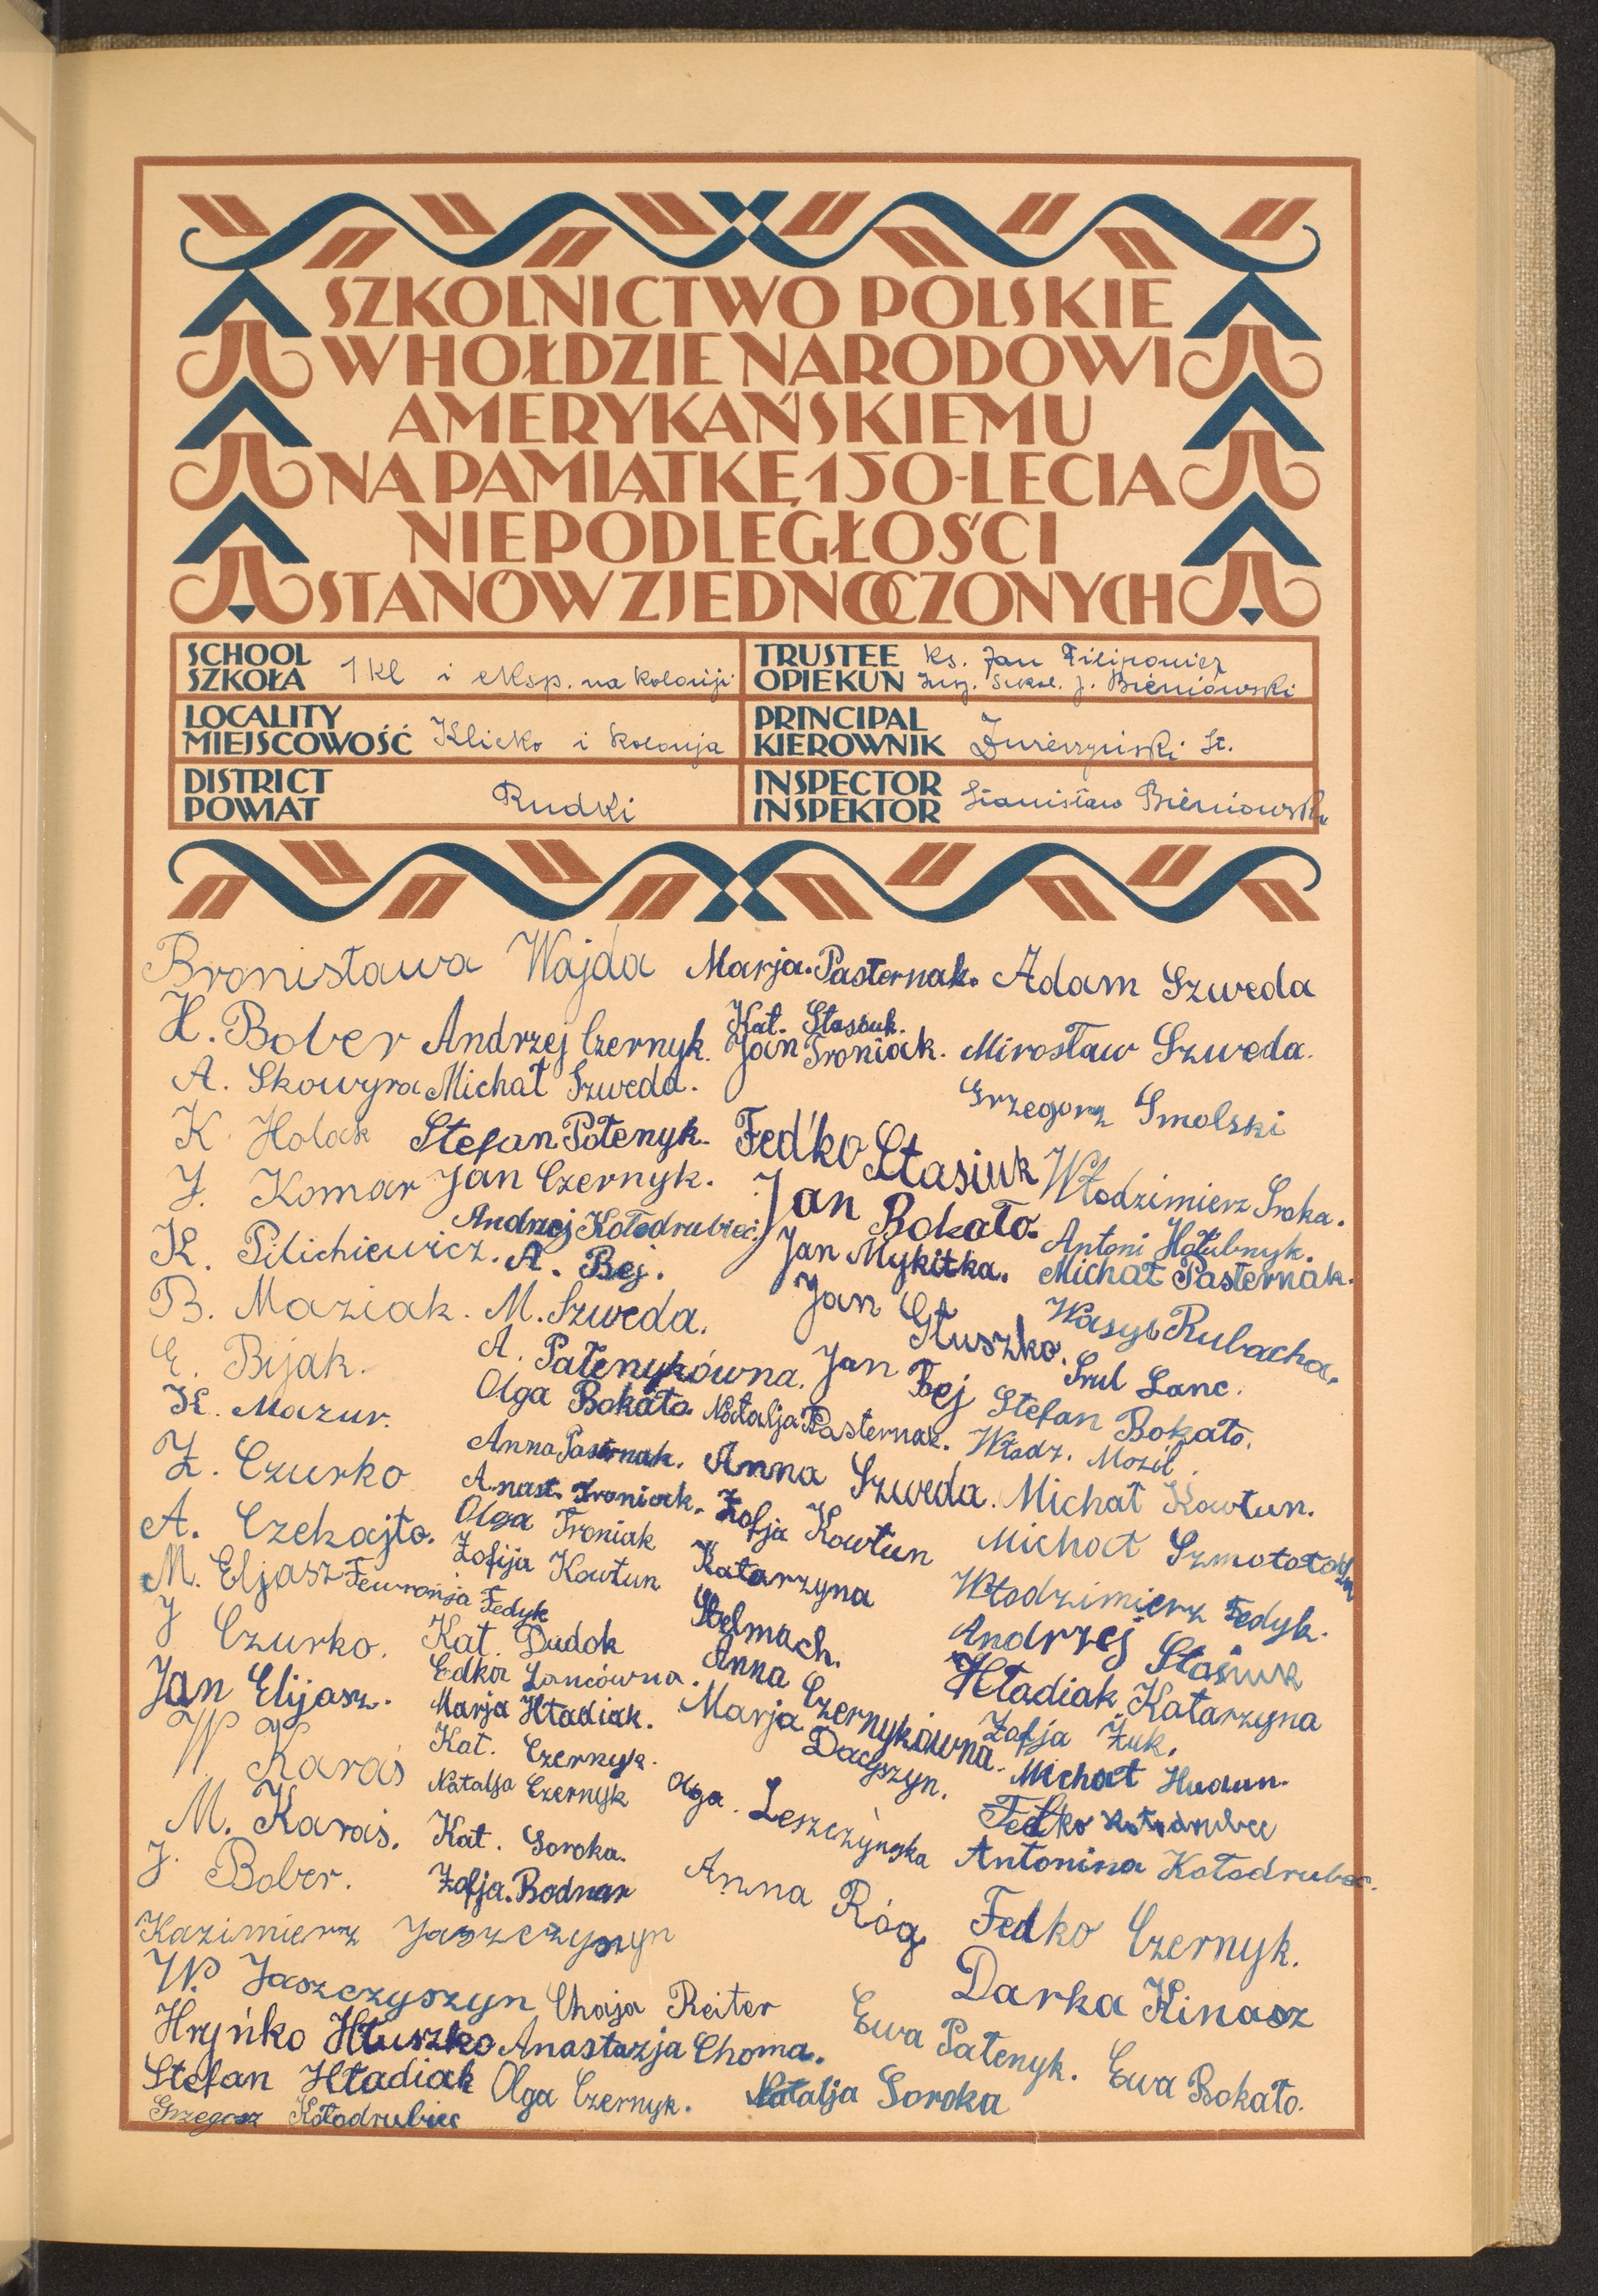 SZKOLNICTWO POLSKIE
W HOŁDZIE NARODOWI
AMERYKAŃSKIEMU
NA PAMIĄTKĘ 150-LECIA
NIEPODLEGŁOŚCI
STANÓW ZJEDNOCZONYCH
SCHOOL
SZKOŁA 1 kl i eksp. na kolonji
TRUSTEE Ks. Jan Filipowicz
OPIEKUN Insp. szkol. J. Bieniowski
LOCALITY
MIEJSCOWOŚĆ Klicko i kolonja
PRINCIPAL
KIEROWNIK St.
DISTRICT
POWIAT Rudki
INSPECTOR
INSPEKTOR Stanisław Bieniowski
Bronisława Wajda Marja Pasternak. Adam Szweda
H. Bober Andrzej Czernyk. Kat. Stasiuk.
Jan Troniak. Mirosław Szweda.
A. Skowyra Michał Szweda.
Grzegorz Smolski
K. Holak Stefan Potenyk. Fed'ko Stasiuk
J. Komar Jan Czernyk. Włodzimierz Sroka.
Andrzej Kołodrubiec. Jan Bokało.
Antoni Hołubnyk.
K. Pilichiewicz. A. Bej. Jan Mykitka. Michał Pasternak.
B. Maziak. M. Szweda. Jan Głuszko. Wasyl Rubacha.
E. Bijak. A. Patenykówna. Jan Bej Srul Lanc.
K. Mazur. Olga Bokało Natalja Pasternak. Stefan Bokało.
Włodz. Mozil.
Z. Czurko Anna Pasternak. Anna Szweda. Michał Kowtun.
A. Czekajło. Anast. Troniak. Zofja Kowtun Michał
Olga Troniak
M. Eljasz Fewronja Fedyk Zofija Kowtun Katarzyna Stelmach. Włodzimierz Fedyk.
J Czurko. Kat. Dudok Anna Czernykówna. Andrzej Stasiuk
Jan Elijasz. Edka Lancówna. Hładiak Katarzyna
Marja Hładiak. Marja Dacyszyn. Zofja Żuk.
W Karaś Kat. Czernyk. Michał
Natalja Czernyk Olga Leszczyńska Fedko Kołodrubec
M. Karaś. Kat. Soroka. Antonina Kołodrubec.
J. Bober. Zofja Bodnar Anna Róg Fedko Czernyk.
Kazimierz Jaszczyszyn
W. Jaszczyszyn Chaja Reiter Darka Kinasz
Hryńko Hłuszko Anastazja Choma. Ewa Patenyk.
Stefan Hładiak Olga Czernyk. Natalja Soroka Ewa Bokało.
Grzegosz Kołodrubiec